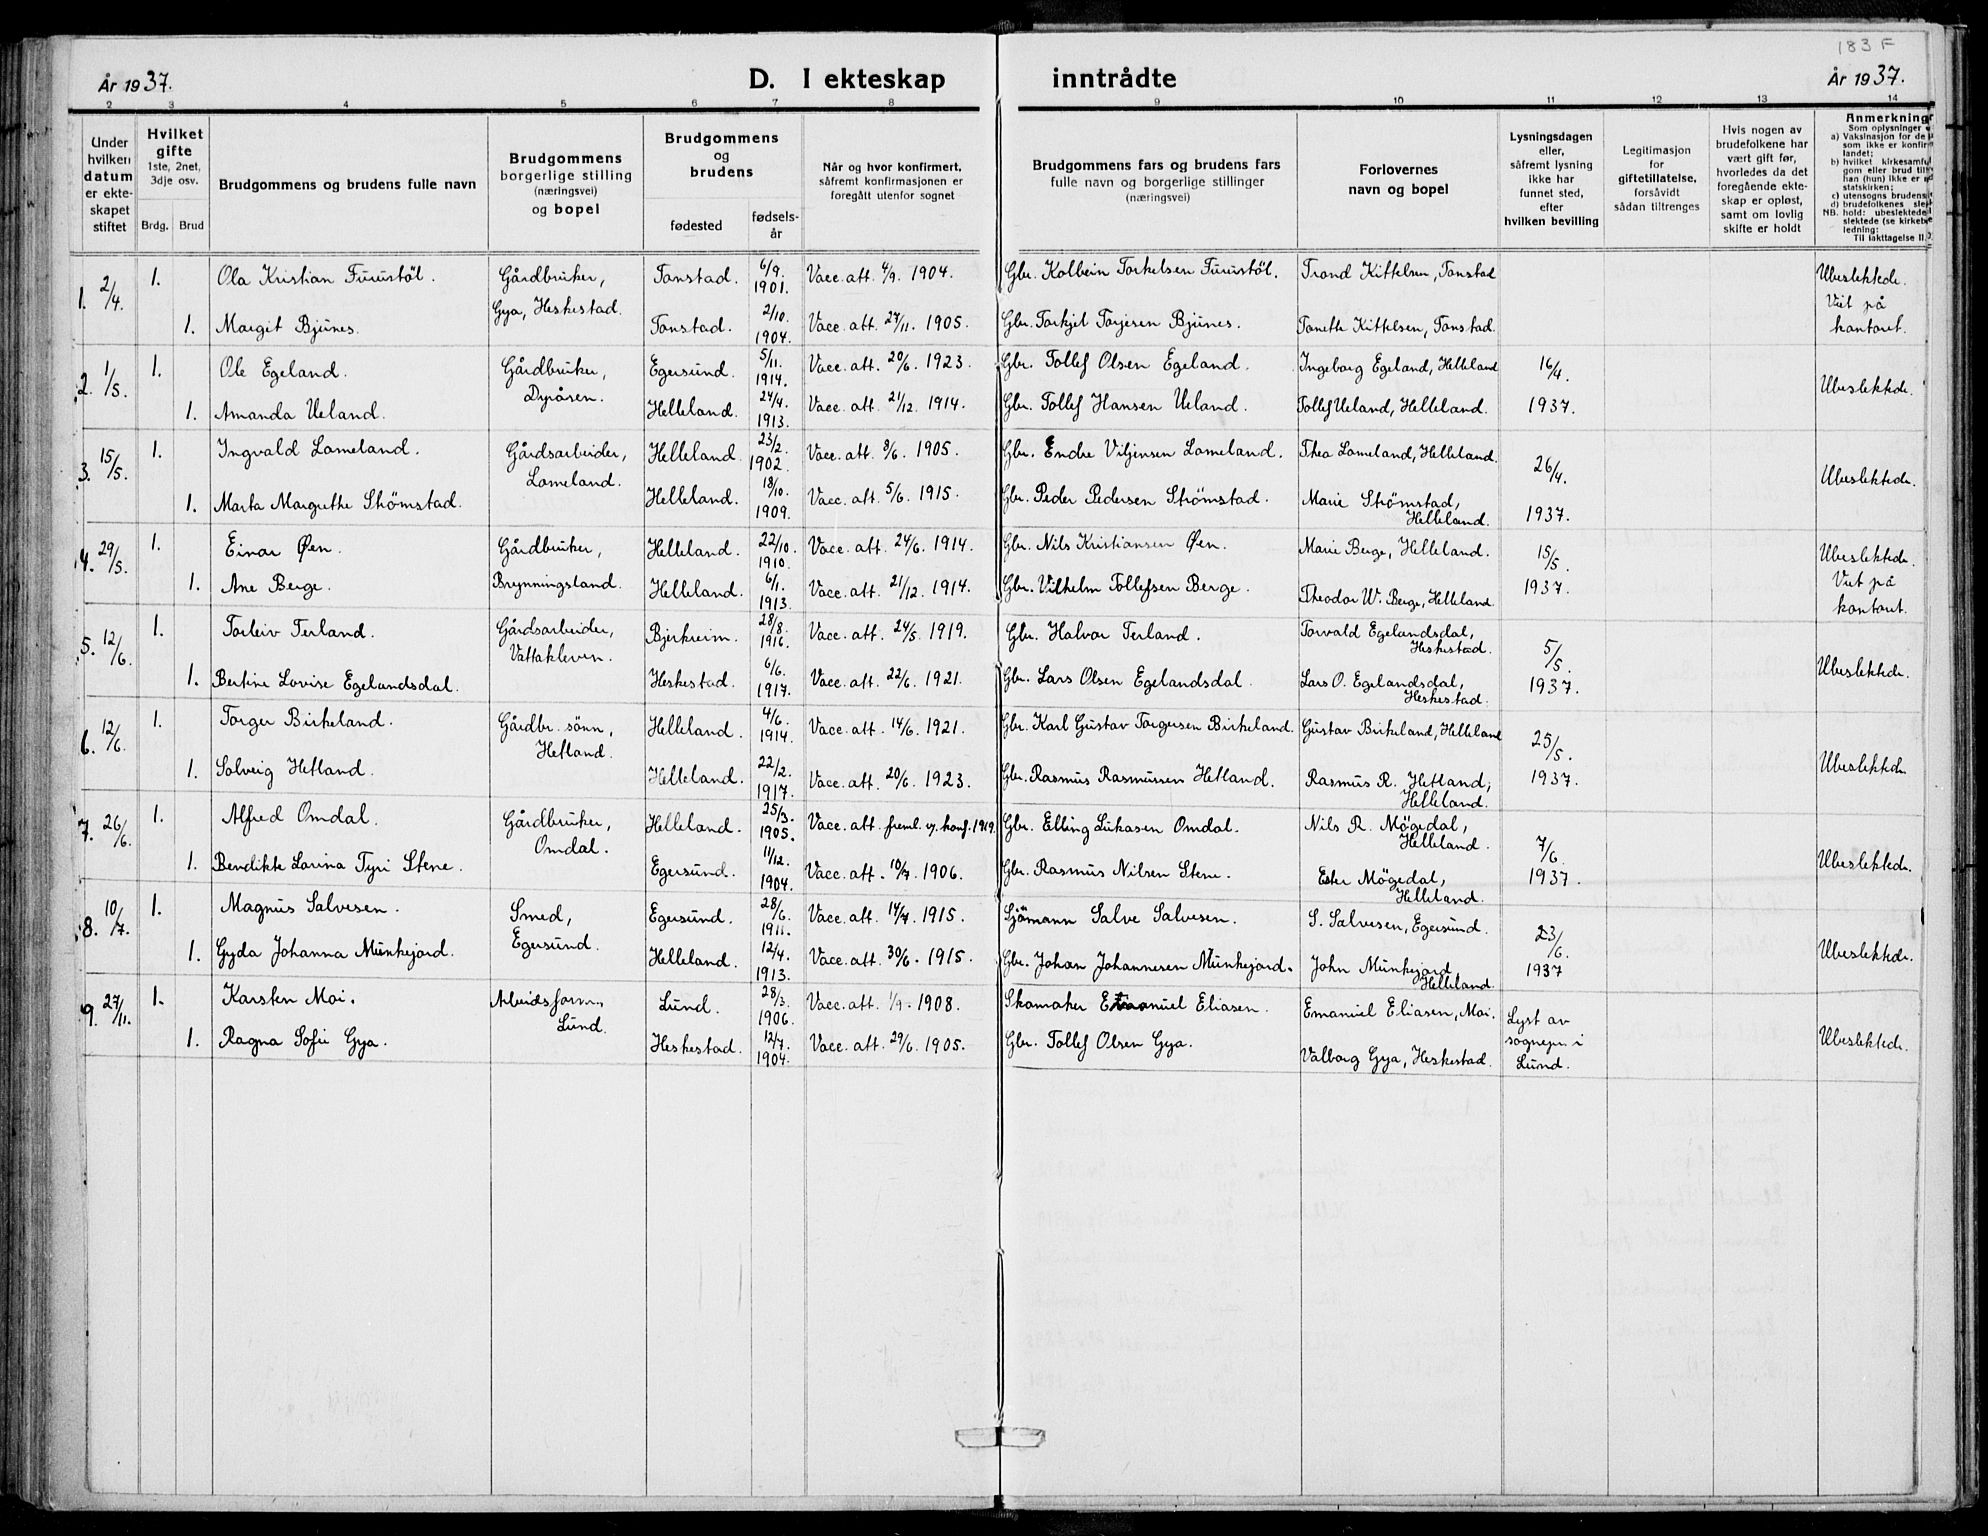 183 F
År 1937.
D. I ekteskap inntrådte
År 1937.
2 3 4 5 6 7 8 9 10 11 12 13 14
Under hvilken datum er ekteskapet stiftet
Hvilket gifte 1ste, 2net, 3dje osv.
Brdg. Brud
Brudgommens og brudens fulle navn
Brudgommens borgerlige stilling (næringsvei) og bopel
Brudgommens og brudens
fødested
fødselsår
Når og hvor konfirmert, såfremt konfirmasjonen er foregått utenfor sognet
Brudgommens fars og brudens fars fulle navn og borgerlige stillinger (næringsvei)
Forlovernes navn og bopel
Lysningsdagen eller, såfremt lysning ikke har funnet sted, efter hvilken bevilling
Legitimasjon for giftetillatelse, forsåvidt sådan tiltrenges
Hvis nogen av brudefolkene har vært gift før, hvorledes da det foregående ekteskap er opløst, samt om lovlig skifte er holdt
Anmerkning
Som oplysninger
a) Vaksinasjon for de som ikke er konfir landet;
b) hvilket kirkesamf gom eller brud til han (hun) ikke er statskirken;
c) utensogns brudens
d) brudefolkenes sle
NB. hold: ubeslektede slektede (se kirkeb ledning:
Til iakttagelse II.
1. 2/4. 1. Ola Kristian Furustøl. Gårdbruker, Tonstad. 6/9. 1901. Vacc. att. 4/9. 1904. Gbr. Kolbein Torkelsen Furustøl. Trond Kittelsen, Tonstad Ubeslektede.
Gya, Heskestad. Viet på
1. Margit Bjunes. Tonstad. 2/10. 1904. Vacc. att. 24/11. 1905. Gbr. Torkjel Torjesen Bjunes. Tonette Kittelsen, Tonstad. kontoret.
2. 1/5. 1. Ole Egeland. Gårdbruker, Egersund. 5/11. 1914. Vacc. att. 20/6. 1923. Gbr. Tollef Olsen Egeland. Ingeborg Egeland, Helleland 16/4. Ubeslektede.
Dyråsen.
1. Amanda Ueland. Helleland. 24/4. 1913. Vacc. att. 21/12. 1914. Gbr. Tollef Hansen Ueland. Tollef Ueland, Helleland. 1937.
3. 15/5. 1. Ingvald Lomeland. Gårdsarbeider, Helleland. 23/2. 1902. Vacc. att. 8/6. 1905. Gbr. Endre Viljensen Lomeland. Thea Lomeland, Helleland. 26/4. Ubeslektede.
Lomeland.
1. Marta Margrethe Strømstad. Helleland. 18/10. 1909. Vacc. att. 5/6. 1915. Gbr. Peder Pedersen Strømstad. Marie Strømstad, Helleland. 1937.
4. 29/5. 1. Einar Øen. Gårdbruker, Helleland. 22/10. 1910. Vacc. att. 24/6. 1914. Gbr. Nils Kristiansen Øen. Marie Berge, Helleland. 15/5. Ubeslektede.
Viet på
1. Ane Berge. Brynningsland. Helleland. 6/1. 1913. Vacc. att. 21/12. 1914. Gbr. Vilhelm Tollefsen Berge. Theodor W. Berge, Helleland. 1937. kontoret.
5. 12/6. 1. Torleiv Terland. Gårdsarbeider, Bjerkreim. 28/8. 1916. Vacc. att. 24/5. 1919. Gbr. Halvor Terland. Torvald Egelandsdal, Heskestad. 5/5. Ubeslektede.
Vattakleven.
1. Bertine Lovise Egelandsdal. Heskestad. 6/6. 1917. Vacc. att. 22/6. 1921. Gbr. Lars Olsen Egelandsdal. Lars O. Egelandsdal, Heskestad. 1937.
6. 12/6. 1. Torger Birkeland. Gårdbr. sønn, Helleland. 4/6. 1914. Vacc. att. 14/6. 1921. Gbr. Karl Gustav Torgersen Birkeland. Gustav Birkeland, Helleland 25/5. Ubeslektede
Hetland.
1. Solveig Hetland. Helleland. 22/2. 1917. Vacc. att. 20/6. 1923. Gbr. Rasmus Rasmussen Hetland. Rasmus R. Hetland, Helleland. 1937.
7. 26/6. 1. Alfred Omdal. Gårdbruker, Helleland. 25/3. 1905. Vacc. att. freml. v. konf. 1919. Gbr. Elling Lukasen Omdal. Nils R. Møgedal, Helleland. 7/6. Ubeslektede.
Omdal.
1. Bendikte Lovina Tyri Stene. Egersund. 11/12. 1904. Vacc. att. 10/7. 1906. Gbr. Rasmus Nilsen Stene. Ester Møgedal, Helleland. 1937.
8. 10/7. 1. Magnus Salvesen. Smed, Egersund. 28/6. 1911. Vacc. att. 14/7. 1915. Sjömann Salve Salvesen. S. Salvesen, Egersund. 23/6. Ubeslektede.
Egersund.
1. Gyda Johanna Munkejord. Helleland. 12/4. 1913. Vacc. att. 30/6. 1915. Gbr. Johan Johannesen Munkejord. John Munkejord Helleland. 1937
9. 27/11. 1. Karsten Moi. Arbeidsform., Lund. 28/3. 1906. Vacc. att. 1/9. 1908. Skomaker Emanuel Eliasen. Emanuel Eliasen, Moi. Lyst av Ubeslektede.
Lund. sognepr. i
1. Ragna Sofie Gya. Heskestad. 12/7. 1904. Vacc. att. 29/6. 1905. Gbr. Tollef Olsen Gya. Valborg Gya, Heskestad. Lund.